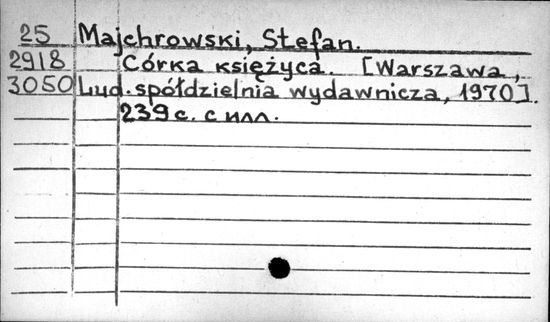 25 Majchrowski, Stefan.
2918 Córka księżyca. [Warszawa,
3050 Lud. spółdzielnia wydawnicza, 1970].
239 с. с илл.